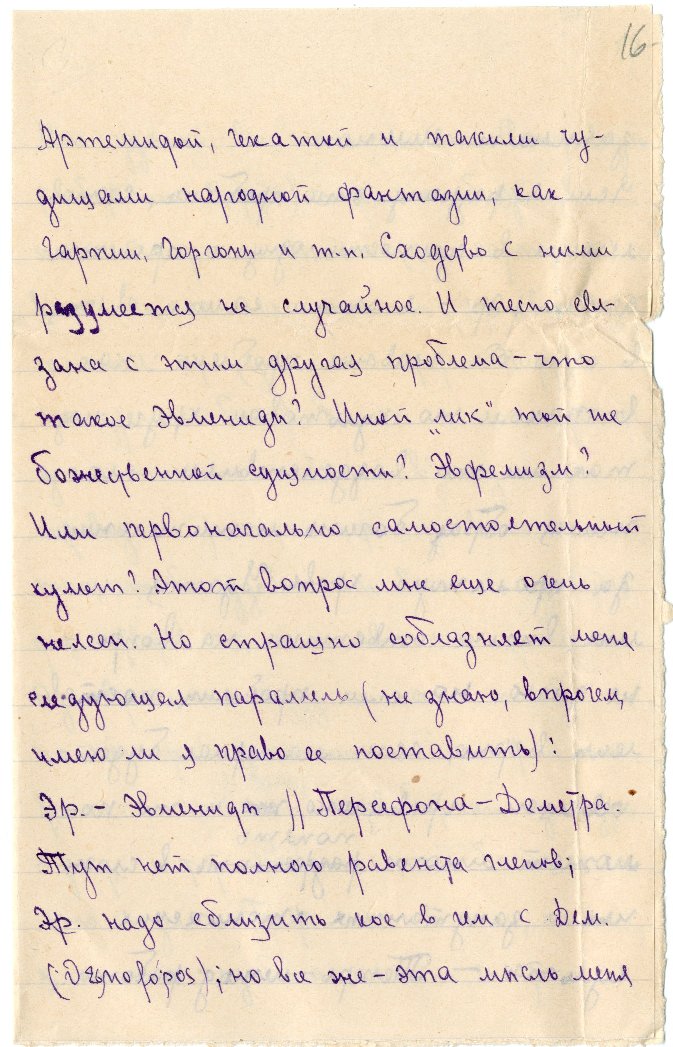 16
Артемидой, Гекатой и такими чу-
дищами народной фантазии, как
Гарпии, Горгоны и т.п. Сходство с ними
разумеется не случайное. И тесно свя-
зана с этим другая проблема – что
такое Эвмениды? Иной „лик“ той же
божественной сущности? Эвфемизм?
Или первоначально самостоятельный
культ? Этот вопрос мне еще очень
неясен. Но страшно соблазняет меня
следующая параллель (не знаю, впрочем,
имею ли я право ее поставить):
Эр. – Эвмениды || Персефона – Деметра.
Тут нет полного равенства членов,
Эр. надо сблизить кое в чем с Дем.
); но все же – эта мысль меня